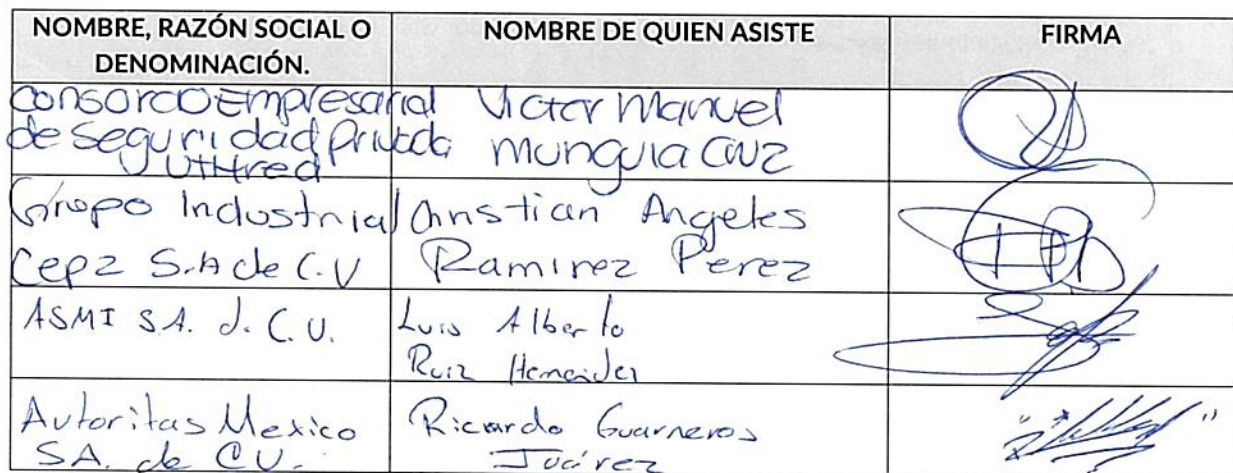 NOMBRE, RAZÓN SOCIAL O
DENOMINACIÓN.
NOMBRE DE QUIEN ASISTE
FIRMA
Consorcio Empresarial
de Seguridad Privada
UTHred
Victor Manuel
Munguia Cruz
Grupo Industrial
Cepz S.A de C.V
Christian Angeles
Ramirez Perez
ASMI S.A. d. C.V.
Luis Alberto
Ruiz Hernandez
Autoritas Mexico
SA. de CV.
Ricardo Guarneros
Juárez